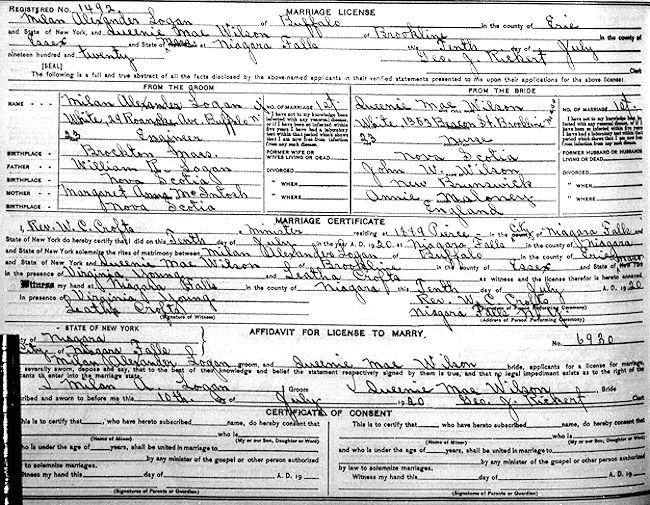 REGISTERED No. 1492 MARRIAGE LICENSE
Milan Alexander Logan of Buffalo in the county of Erie
and State of New York and Queenie Mae Wilson of Brookline in the county of
Essex and State of Niagara Falls this Tenth day of July
nineteen hundred and twenty Geo. J. Rickert Clerk
[SEAL]
The following is a full and true abstract of all the facts disclosed by the above-named applicants in their verified statements presented to me upon their applications for the above license:
FROM THE GROOM FROM THE BRIDE
NAME Milan Alexander Logan NO. OF MARRIAGE 1st. Queenie Mae Wilson NO. OF MARRIAGE 1st.
White, 29 Roanoke Ave. Buffalo White 1353 Beacon St. Brookline
I have not to my knowledge been infected with any venereal disease, or if I have been so infected within five years I have had a laboratory test within that period which shows that I am now free from infection from any such disease.
23 Engineer 23 Nurse
BIRTHPLACE Brockton Mass. FORMER WIFE OR WIVES LIVING OR DEAD Nova Scotia FORMER HUSBAND OR HUSBANDS LIVING OR DEAD
FATHER William R. Logan DIVORCED John W. Wilson DIVORCED
BIRTHPLACE Nova Scotia " WHEN New Brunswick " WHEN
MOTHER Margaret Anna McIntosh " WHEN Annie Maloney " WHEN
BIRTHPLACE Nova Scotia England
MARRIAGE CERTIFICATE
I, Rev. W. C. Crofts a minister residing at 1449 Pierce in the City of Niagara Falls
State of New York do hereby certify that I did on this Tenth day of July in the year A. D. 1920 at Niagara Falls in the county of Niagara
and State of New York solemnize the rites of matrimony between Milan Alexander Logan of Buffalo in the county of Erie
and State of New York and Queenie Mae Wilson of Brookline in the county of Essex and State of Mass.
in the presence of Virginia Young and Leatha Crofts as witness and the license therefor is hereto annexed
Witness my hand at Niagara Falls in the county of Niagara this Tenth day of July A. D. 1920
In presence of Virginia Young Rev. W. C. Crofts
Leatha Crofts Niagara Falls N. Y.
(Signature of Witness) (Address of Person Performing Ceremony)
STATE OF NEW YORK AFFIDAVIT FOR LICENSE TO MARRY No. 6930
of Niagara
of Niagara Falls
Milan Alexander Logan groom, and Queenie Mae Wilson bride, applicants for a license for marriage,
severally sworn, depose and say, that to the best of their knowledge and belief the statement respectively signed by them is true, and that no legal impediment exists as to the right of the
applicants to enter into the marriage state.
Milan A. Logan Groom Queenie Mae Wilson Bride
subscribed and sworn to before me this 10th day of July 1920 Geo. J. Rickert Clerk
CERTIFICATE OF CONSENT
This is to certify that , who have hereto subscribed name, do hereby consent This is to certify that , who have hereto subscribed name, do hereby consent
that who is that who is
(Name of Minor) (My or our Son, Daughter or Ward) (Name of Minor) (My or our Son, Daughter or Ward)
and who is under the age of years, shall be united in marriage to and who is under the age of years, shall be united in marriage to
by any minister of the gospel or other person authorized by any minister of the gospel or other person authorized
by law to solemnize marriages. by law to solemnize marriages.
Witness my hand this day of A. D. 19 Witness my hand this day of A. D. 19
(Signatures of Parents or Guardian) (Signatures of Parents or Guardian)